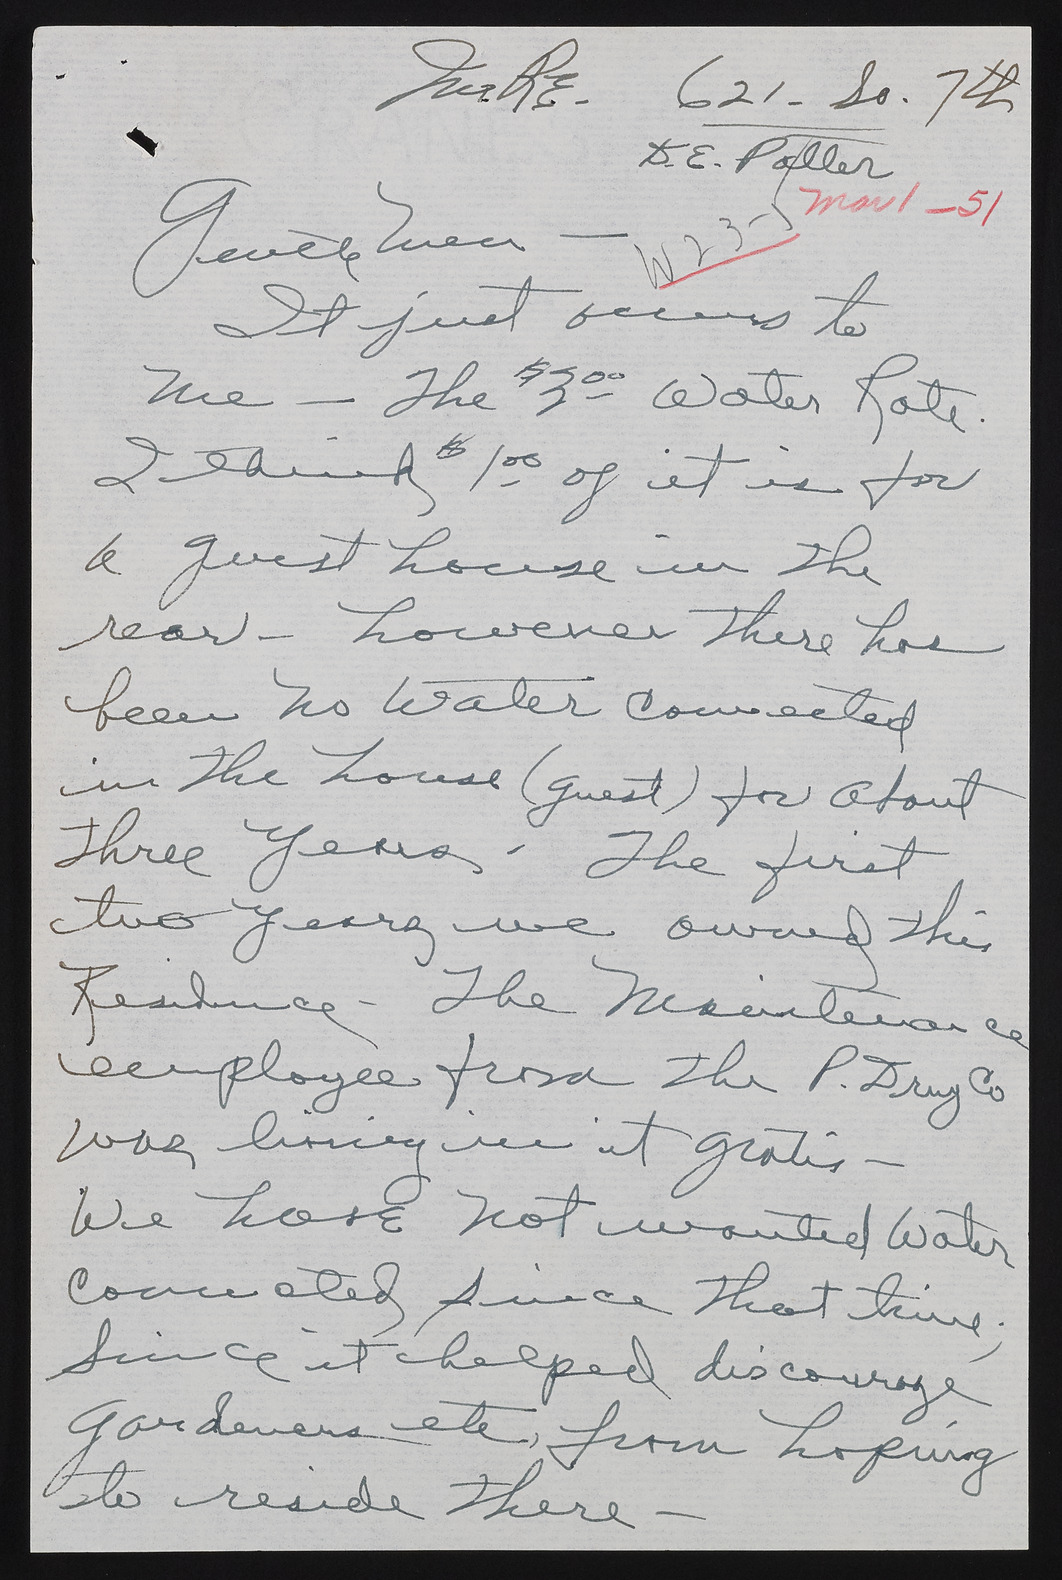 Mr. R.E. 621 - So. 7th
D.E. Potter
Mar 1 - 51
W23-5
Gentlemen —
It just occurs to
me — The $3.00 Water Rate.
I think $1.00 of it is for
a guest house in the
rear — however there has
been no water connected
in the house (guest) for about
three years. The first
two years we owned this
Residence — The Maintenance
employee from the P. Drug Co
was living in it gratis —
We have not wanted water
connected since that time;
Since it helped discourage
gardeners etc, from hoping
to reside there —